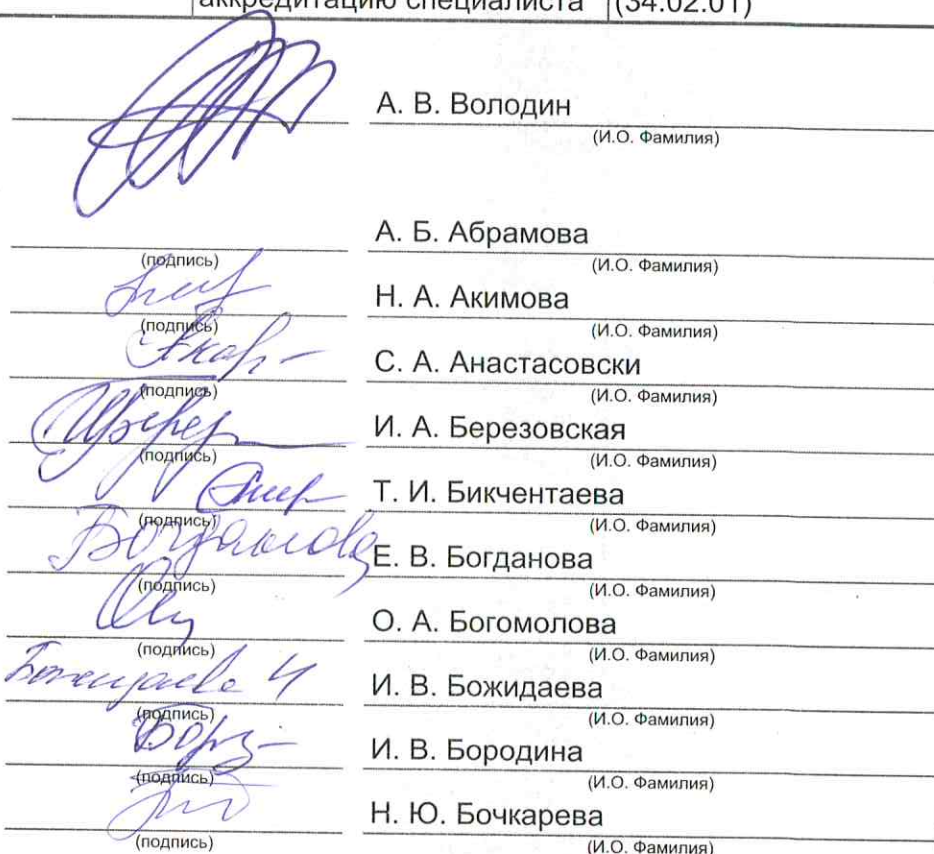 аккредитацию специалиста (34.02.01)
А. В. Володин
(И.О. Фамилия)
А. Б. Абрамова
(подпись) (И.О. Фамилия)
Н. А. Акимова
(подпись) (И.О. Фамилия)
С. А. Анастасовски
(подпись) (И.О. Фамилия)
И. А. Березовская
(подпись) (И.О. Фамилия)
Т. И. Бикчентаева
(подпись) (И.О. Фамилия)
Богданова Е. В. Богданова
(подпись) (И.О. Фамилия)
О. А. Богомолова
(подпись) (И.О. Фамилия)
Божидаева И И. В. Божидаева
(подпись) (И.О. Фамилия)
И. В. Бородина
(подпись) (И.О. Фамилия)
Н. Ю. Бочкарева
(подпись) (И.О. Фамилия)